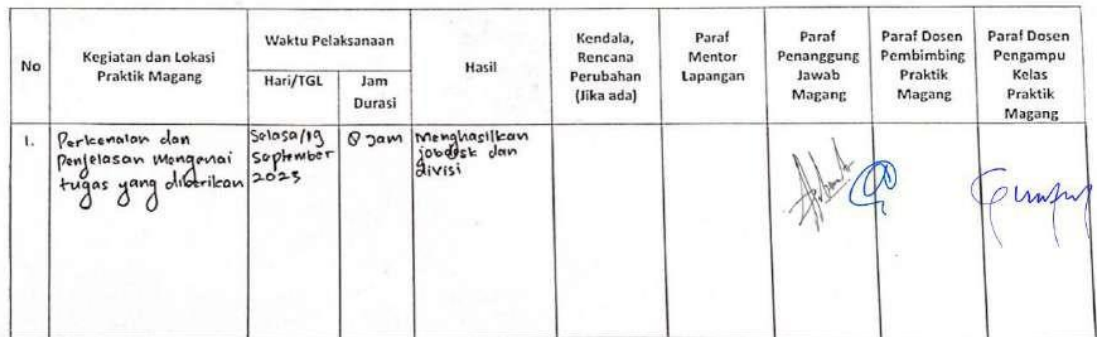 No
Kegiatan dan Lokasi
Praktik Magang
Waktu Pelaksanaan
Hari/TGL
Jam
Durasi
Hasil
Kendala,
Rencana
Perubahan
(Jika ada)
Paraf
Mentor
Lapangan
Paraf
Penanggung
Jawab
Magang
Paraf Dosen
Pembimbing
Praktik
Magang
Paraf Dosen
Pengampu
Kelas
Praktik
Magang
1.
Perkenalan dan
Penjelasan Mengenai
tugas yang diberikan
Selasa/19
September
2023
8 Jam
Menghasilkan
jobdesk dan
divisi